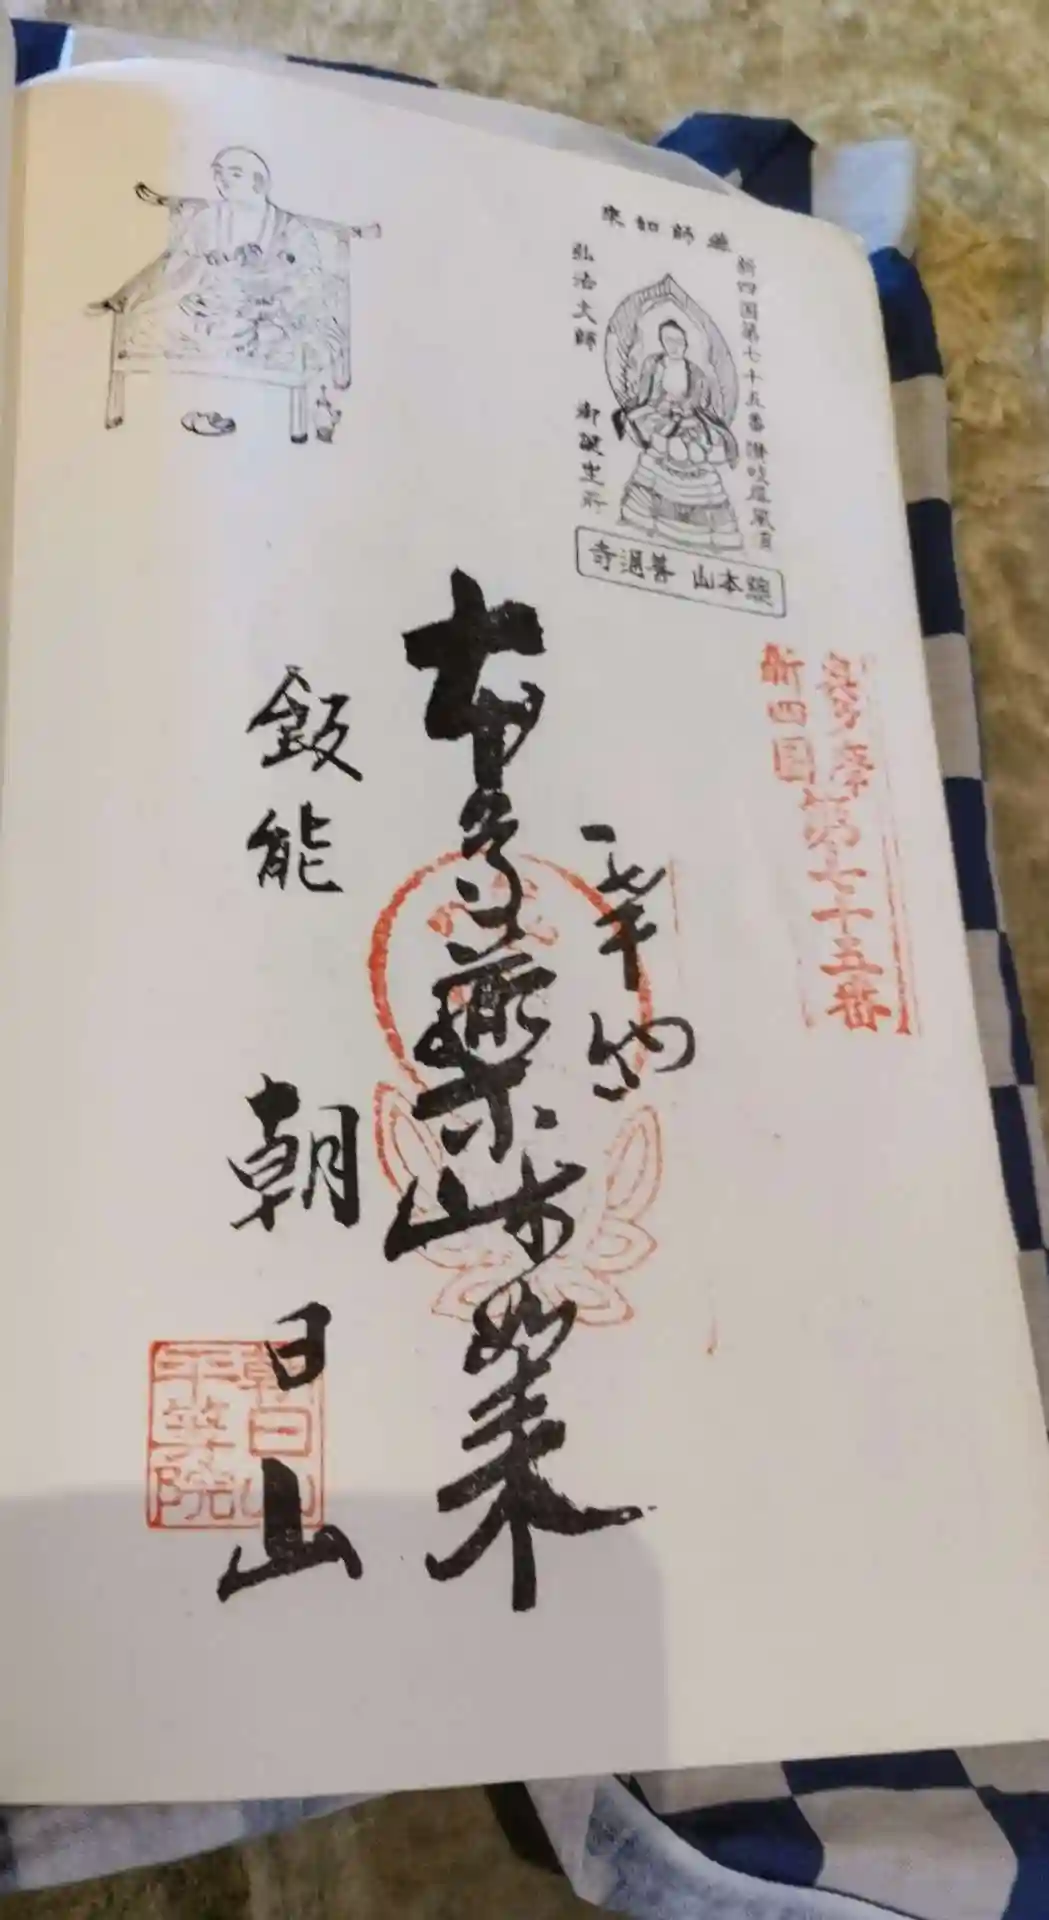 薬師如来
新四国第七十五番讃岐屏風浦
弘法大師 御誕生所
総本山 善通寺
新四国
第七十五番
本尊薬師如来
飯能 朝日山
朝日山
平等院